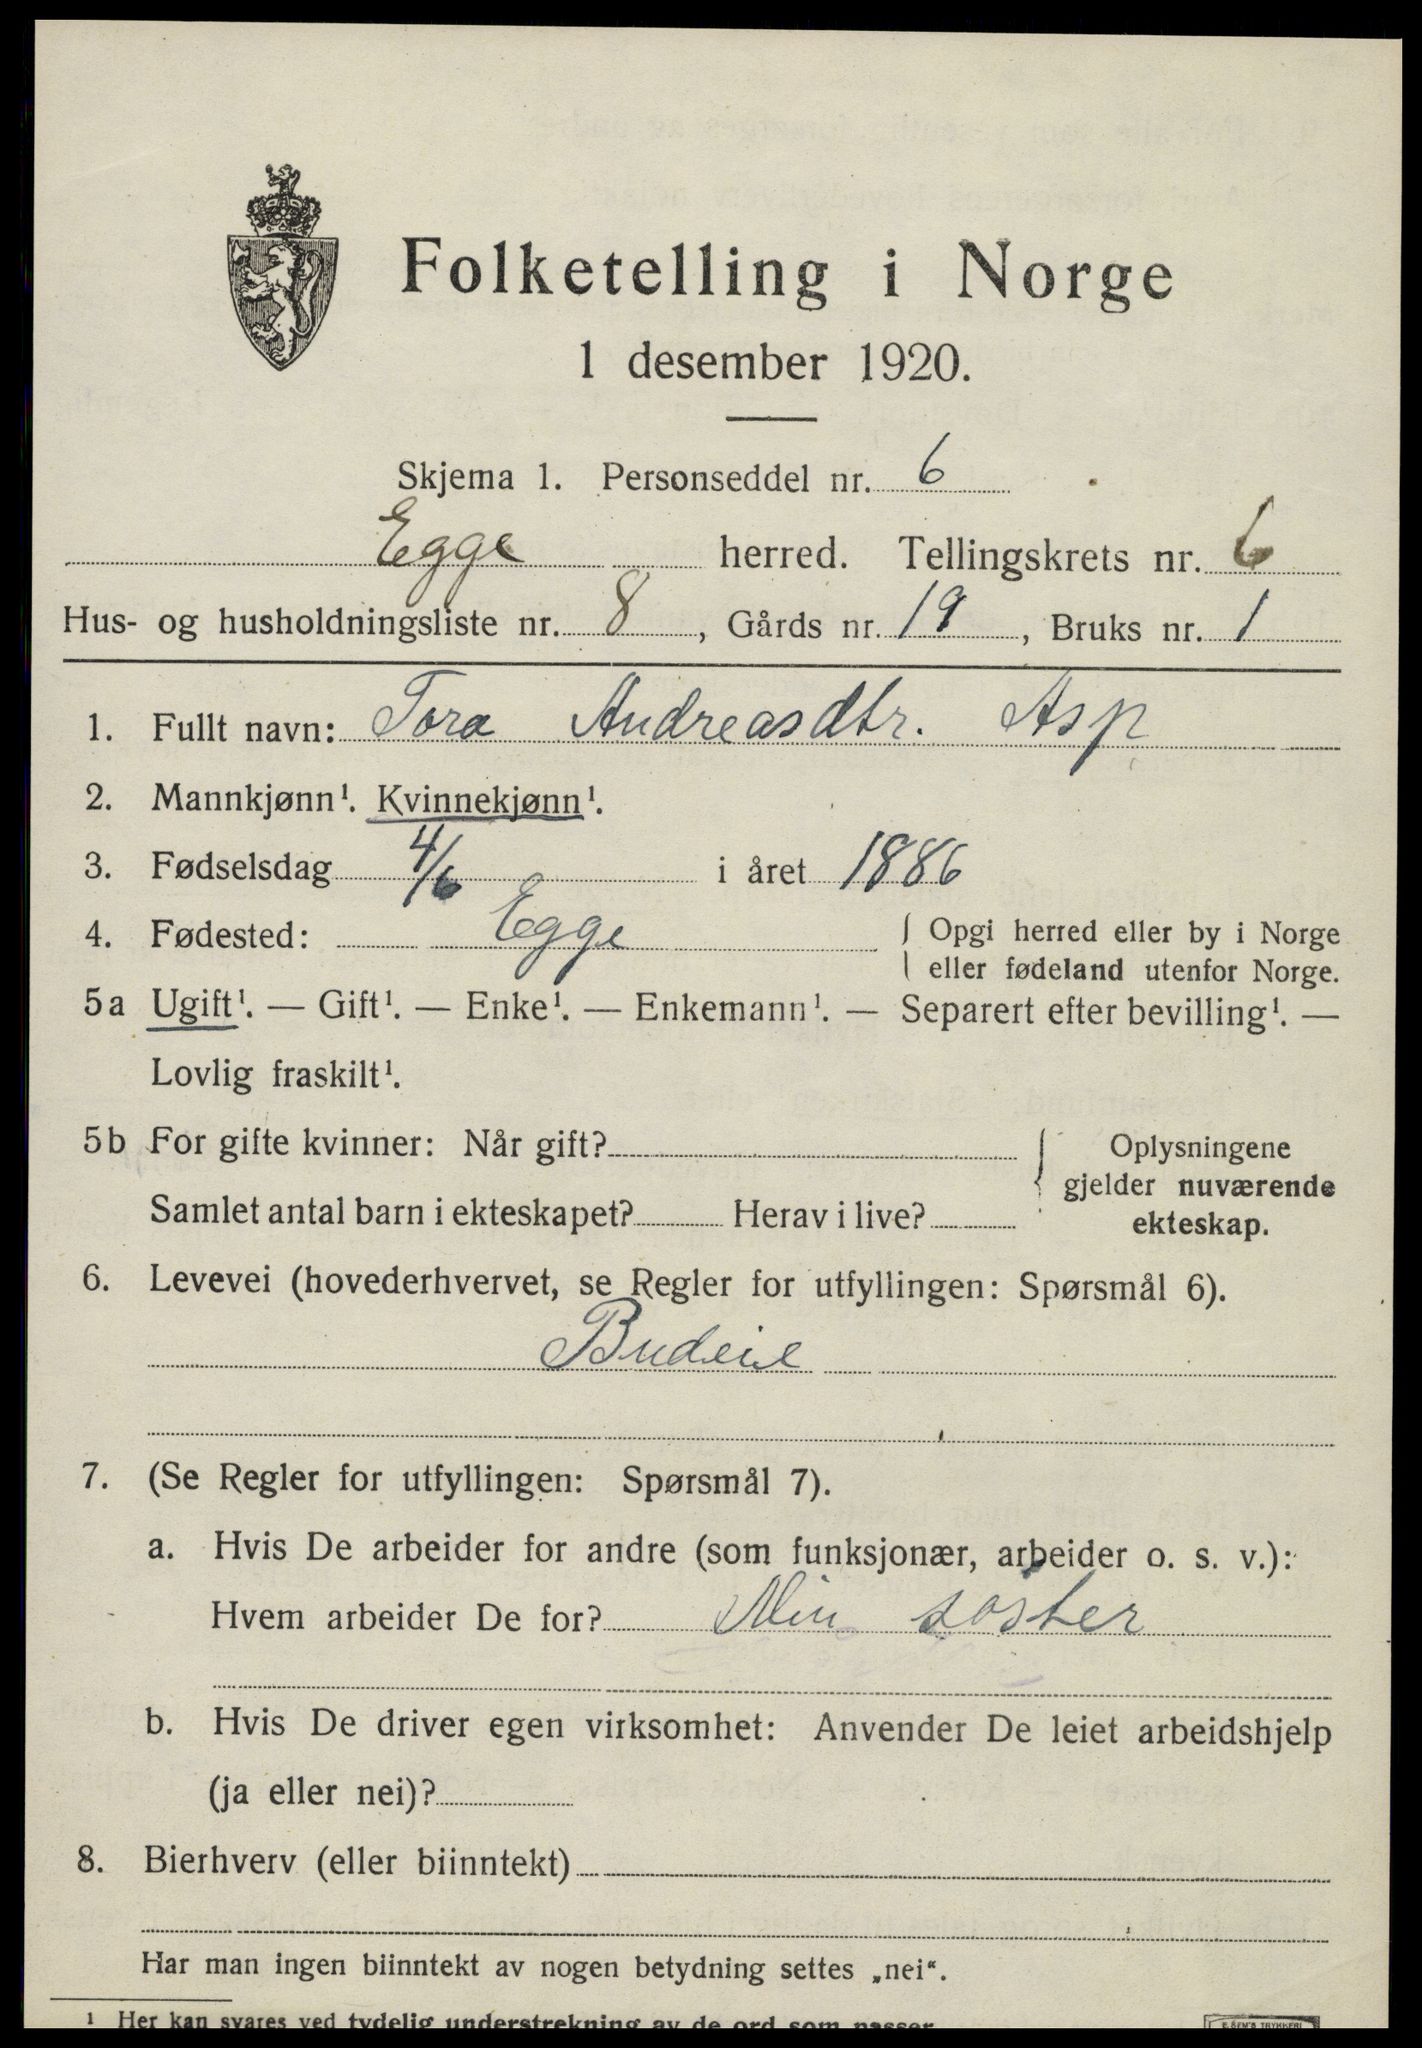 Folketelling i Norge
1 desember 1920.
Skjema 1. Personseddel nr. 6
Egge herred. Tellingskrets nr. 6
Hus- og husholdningsliste nr. 8, Gårds nr. 19, Bruks nr. 1
1. Fullt navn: Tora Andreasdtr. Asp
2. Mannkjønn¹. Kvinnekjønn¹.
3. Fødselsdag 4/6 i året 1886
4. Fødested: Egge { Opgi herred eller by i Norge
eller fødeland utenfor Norge.
5a Ugift¹. — Gift¹. — Enke¹. — Enkemann¹. — Separert efter bevilling¹. —
Lovlig fraskilt¹.
5b For gifte kvinner: Når gift? { Oplysningene
gjelder nuværende
Samlet antal barn i ekteskapet? Herav i live? ekteskap.
6. Levevei (hovederhvervet, se Regler for utfyllingen: Spørsmål 6).
Budeie
7. (Se Regler for utfyllingen: Spørsmål 7).
a. Hvis De arbeider for andre (som funksjonær, arbeider o. s. v.):
Hvem arbeider De for? Min søster
b. Hvis De driver egen virksomhet: Anvender De leiet arbeidshjelp
(ja eller nei)?
8. Bierhverv (eller biinntekt)
Har man ingen biinntekt av nogen betydning settes „nei“.
¹ Her kan svares ved tydelig understrekning av de ord som passer.